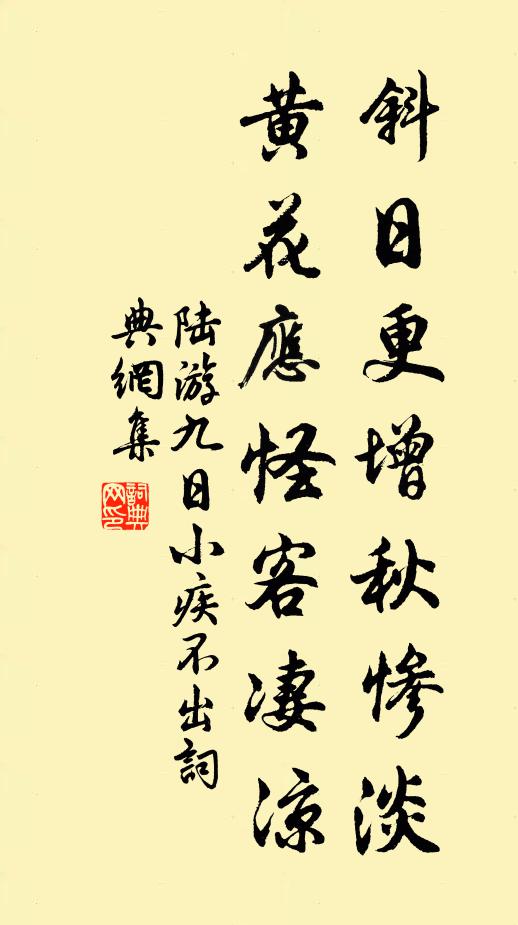 斜日更增秋慘淡
黄花應怪客凄涼
陆游九日小疾不出詞
典網集
詞典网印